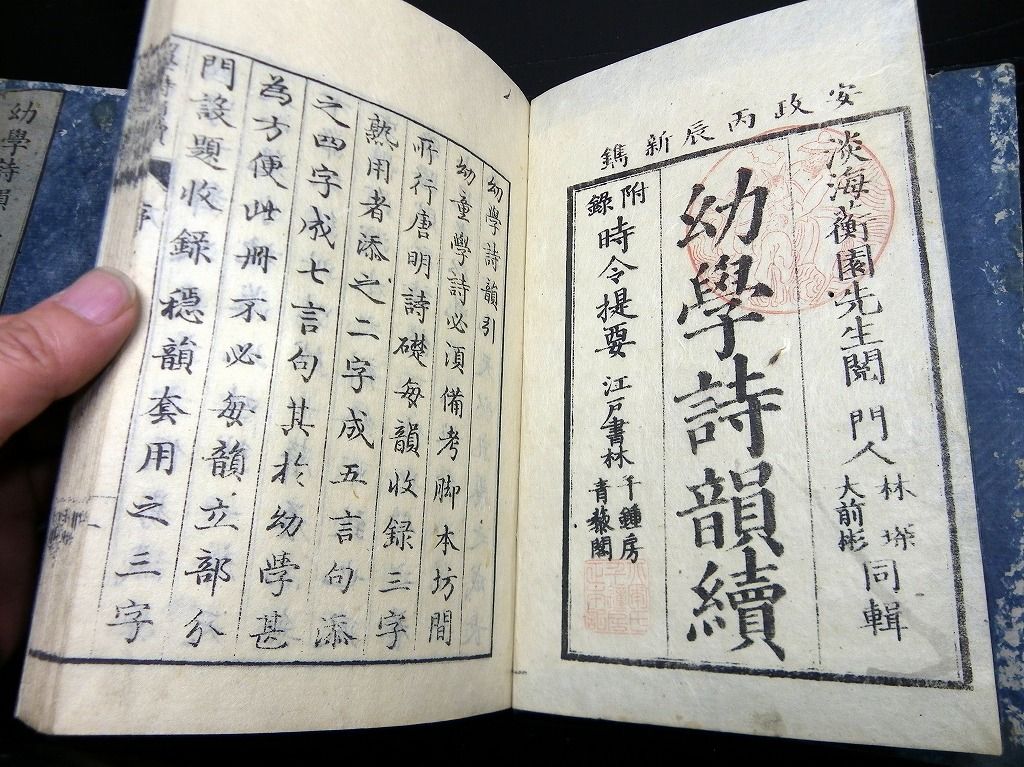 安政丙辰新鐫
淡海蘅園先生閲 門人 林 大前彬 同輯
幼學詩韻續
附錄 時令提要 江戸書林 千鍾房 青藜閣
幼學詩韻引
幼童學詩必須備考脚本坊間
所行唐明詩礎每韻收録三字
熟用者添之二字成五言句添
之四字成七言句其於幼學甚
為方便此册不必每韻立部分
門設題收録穩韻套用之三字
幼學詩韻